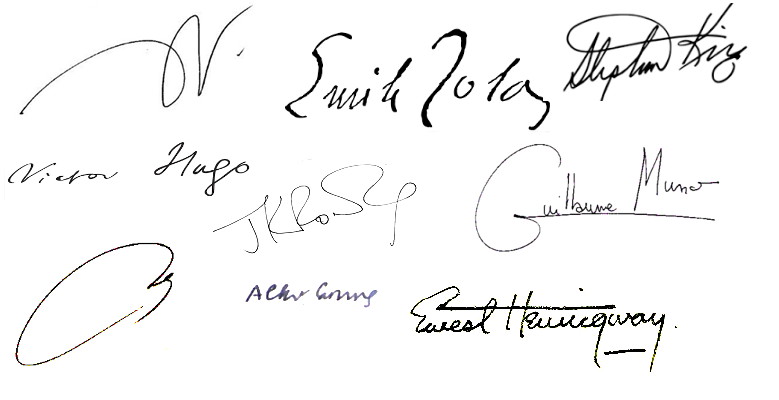 Emile Zola
Stephen King
Victor Hugo
JKRowling
Guillaume Musso
Albert Camus
Ernest Hemingway.